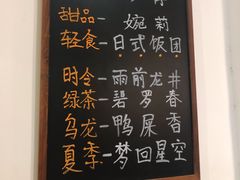 甜品- 婉莉
轻食-日式饭团
时令-雨前龙井
绿茶-碧罗春
乌龙-鸭屎香
夏季-梦回星空